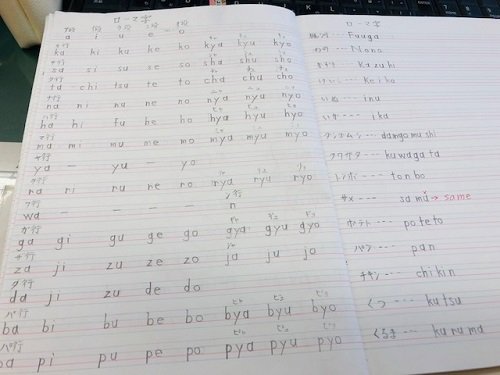 ローマ字
a i u e o
カ行
ka ki ku ke ko kya kyu kyo
サ行
sa si su se so sha shu sho
タ行
ta chi tsu te to cha chu cho
ナ行
na ni nu ne no nya nyu nyo
ハ行
ha hi fu he ho hya hyu hyo
マ行
ma mi mu me mo mya myu myo
ヤ行
ya — yu — yo
ラ行
ra ri ru re ro rya ryu ryo
ワ行
wa — — — — n
ガ行 ギャ ギュ ギョ
ga gi gu ge go gya gyu gyo
ザ行
za ji zu ze zo ja ju jo
ダ行
da ji zu de do
バ行 ビャ ビュ ビョ
ba bi bu be bo bya byu byo
パ行 ピャ ピュ ピョ
pa pi pu pe po pya pyu pyo
ローマ字
Fuuga
Kazuki
Keiko
いぬ … inu
いか … ika
ダンゴムシ … dangomushi
クワガタ … kuwagata
トンボ … tonbo
サメ … same → same
ポテト … poteto
パン … pan
チキン … chikin
くつ … kutsu
くるま … kuruma